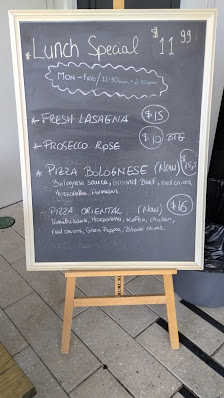 * Lunch Special $11.99
Mon - Fri / 11:30am - 2:30pm
* FRESH LASAGNA $15
* PROSECCO ROSE $10 BTG
* PIZZA BOLOGNESE (New) $15,5
Bolognese sauce, Ground Beef, red onions,
Mozzarella, Parmesan.
* PIZZA ORIENTAL. (New) $16
Tomato sauce, Mozzarella, Kofta, chicken,
red onions, Green Pepper, Black